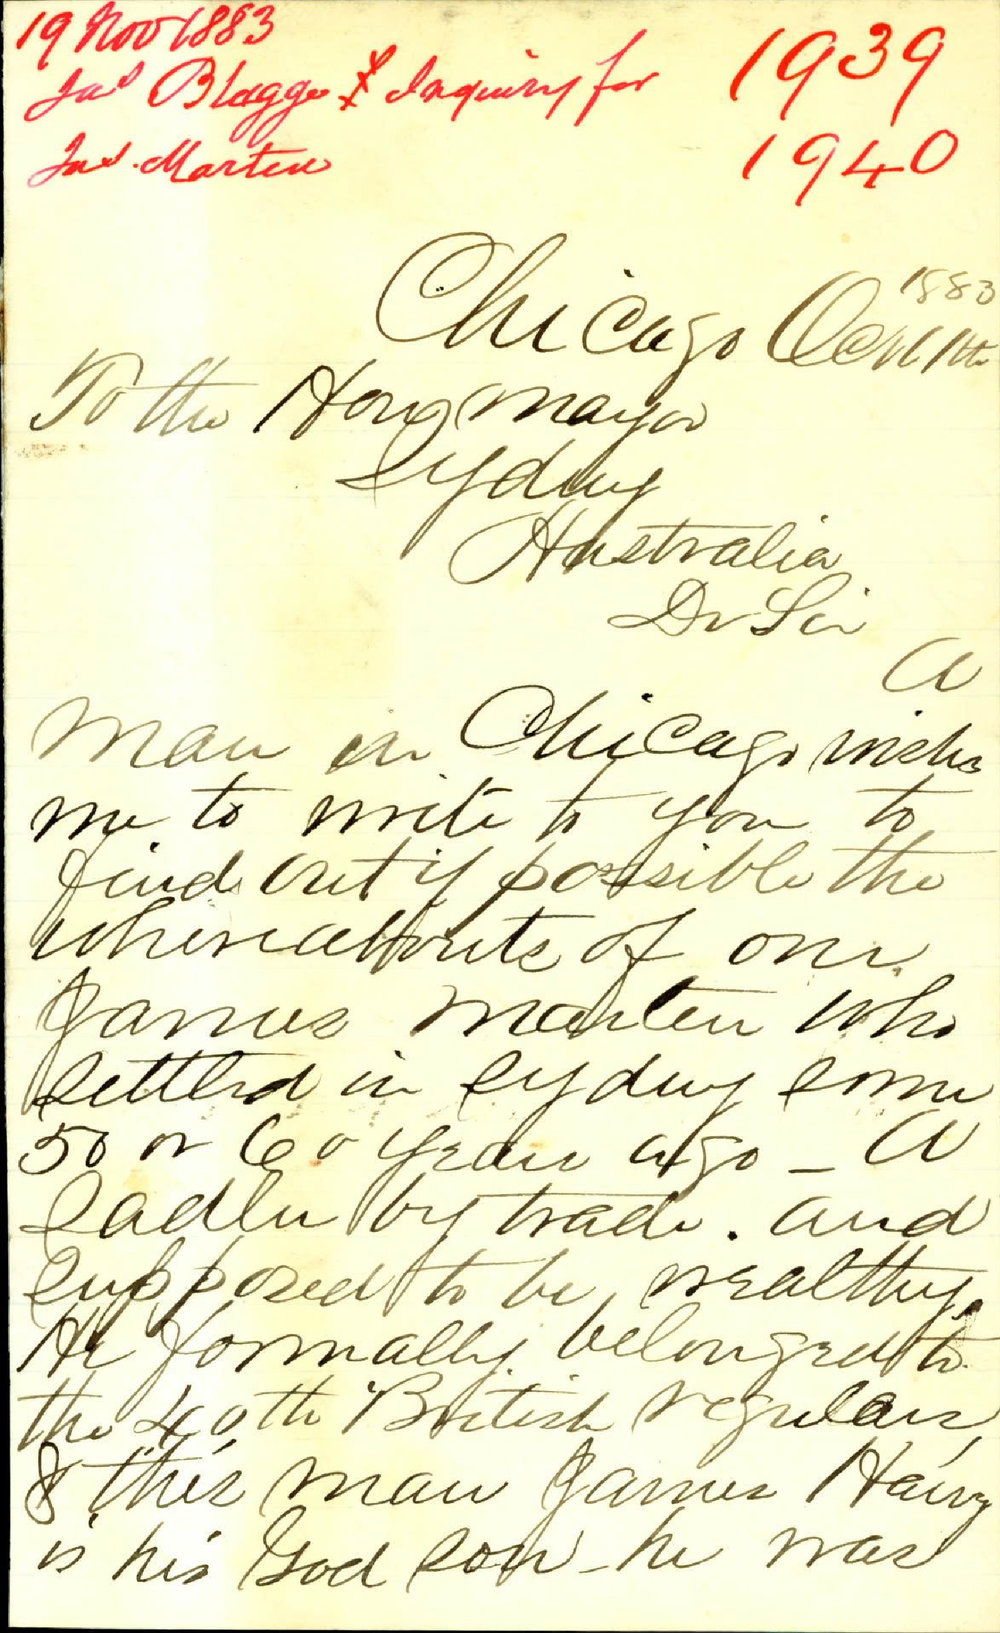 19 Nov 1883
Jas Blagge & Inquiry for
Jas. Marten
1939
1940
1883
Chicago Oct 11th
To the Hon Mayor
Sydney
Australia
Dr Sir
A
man in Chicago wishes
me to write to you to
find out if possible the
whereabouts of one
James Marten who
settled in Sydney some
50 or 60 years ago - A
Sadler by trade. and
supposed to be wealthy.
He formally belonged to
the 40th British regulars,
& this man James Harvy
is his God son - he was